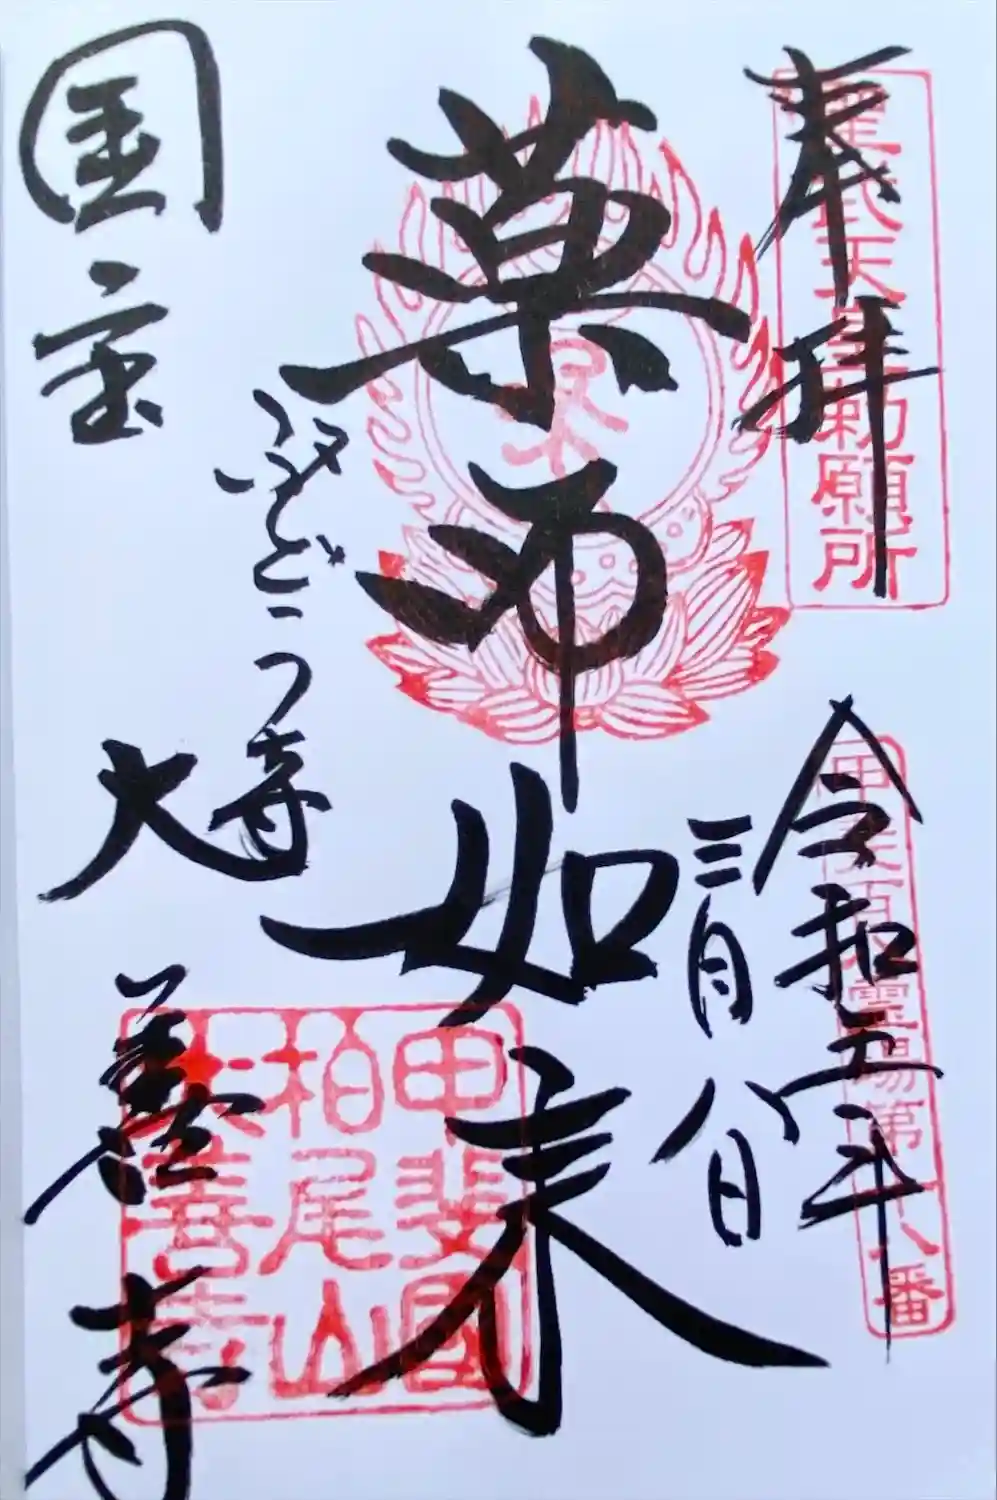 奉拝
聖武天皇勅願所
令和五年
三月八日
甲斐百八霊場第八番
薬師如来
国宝
ぶどう寺
大善寺
甲斐國
柏尾山
大善寺